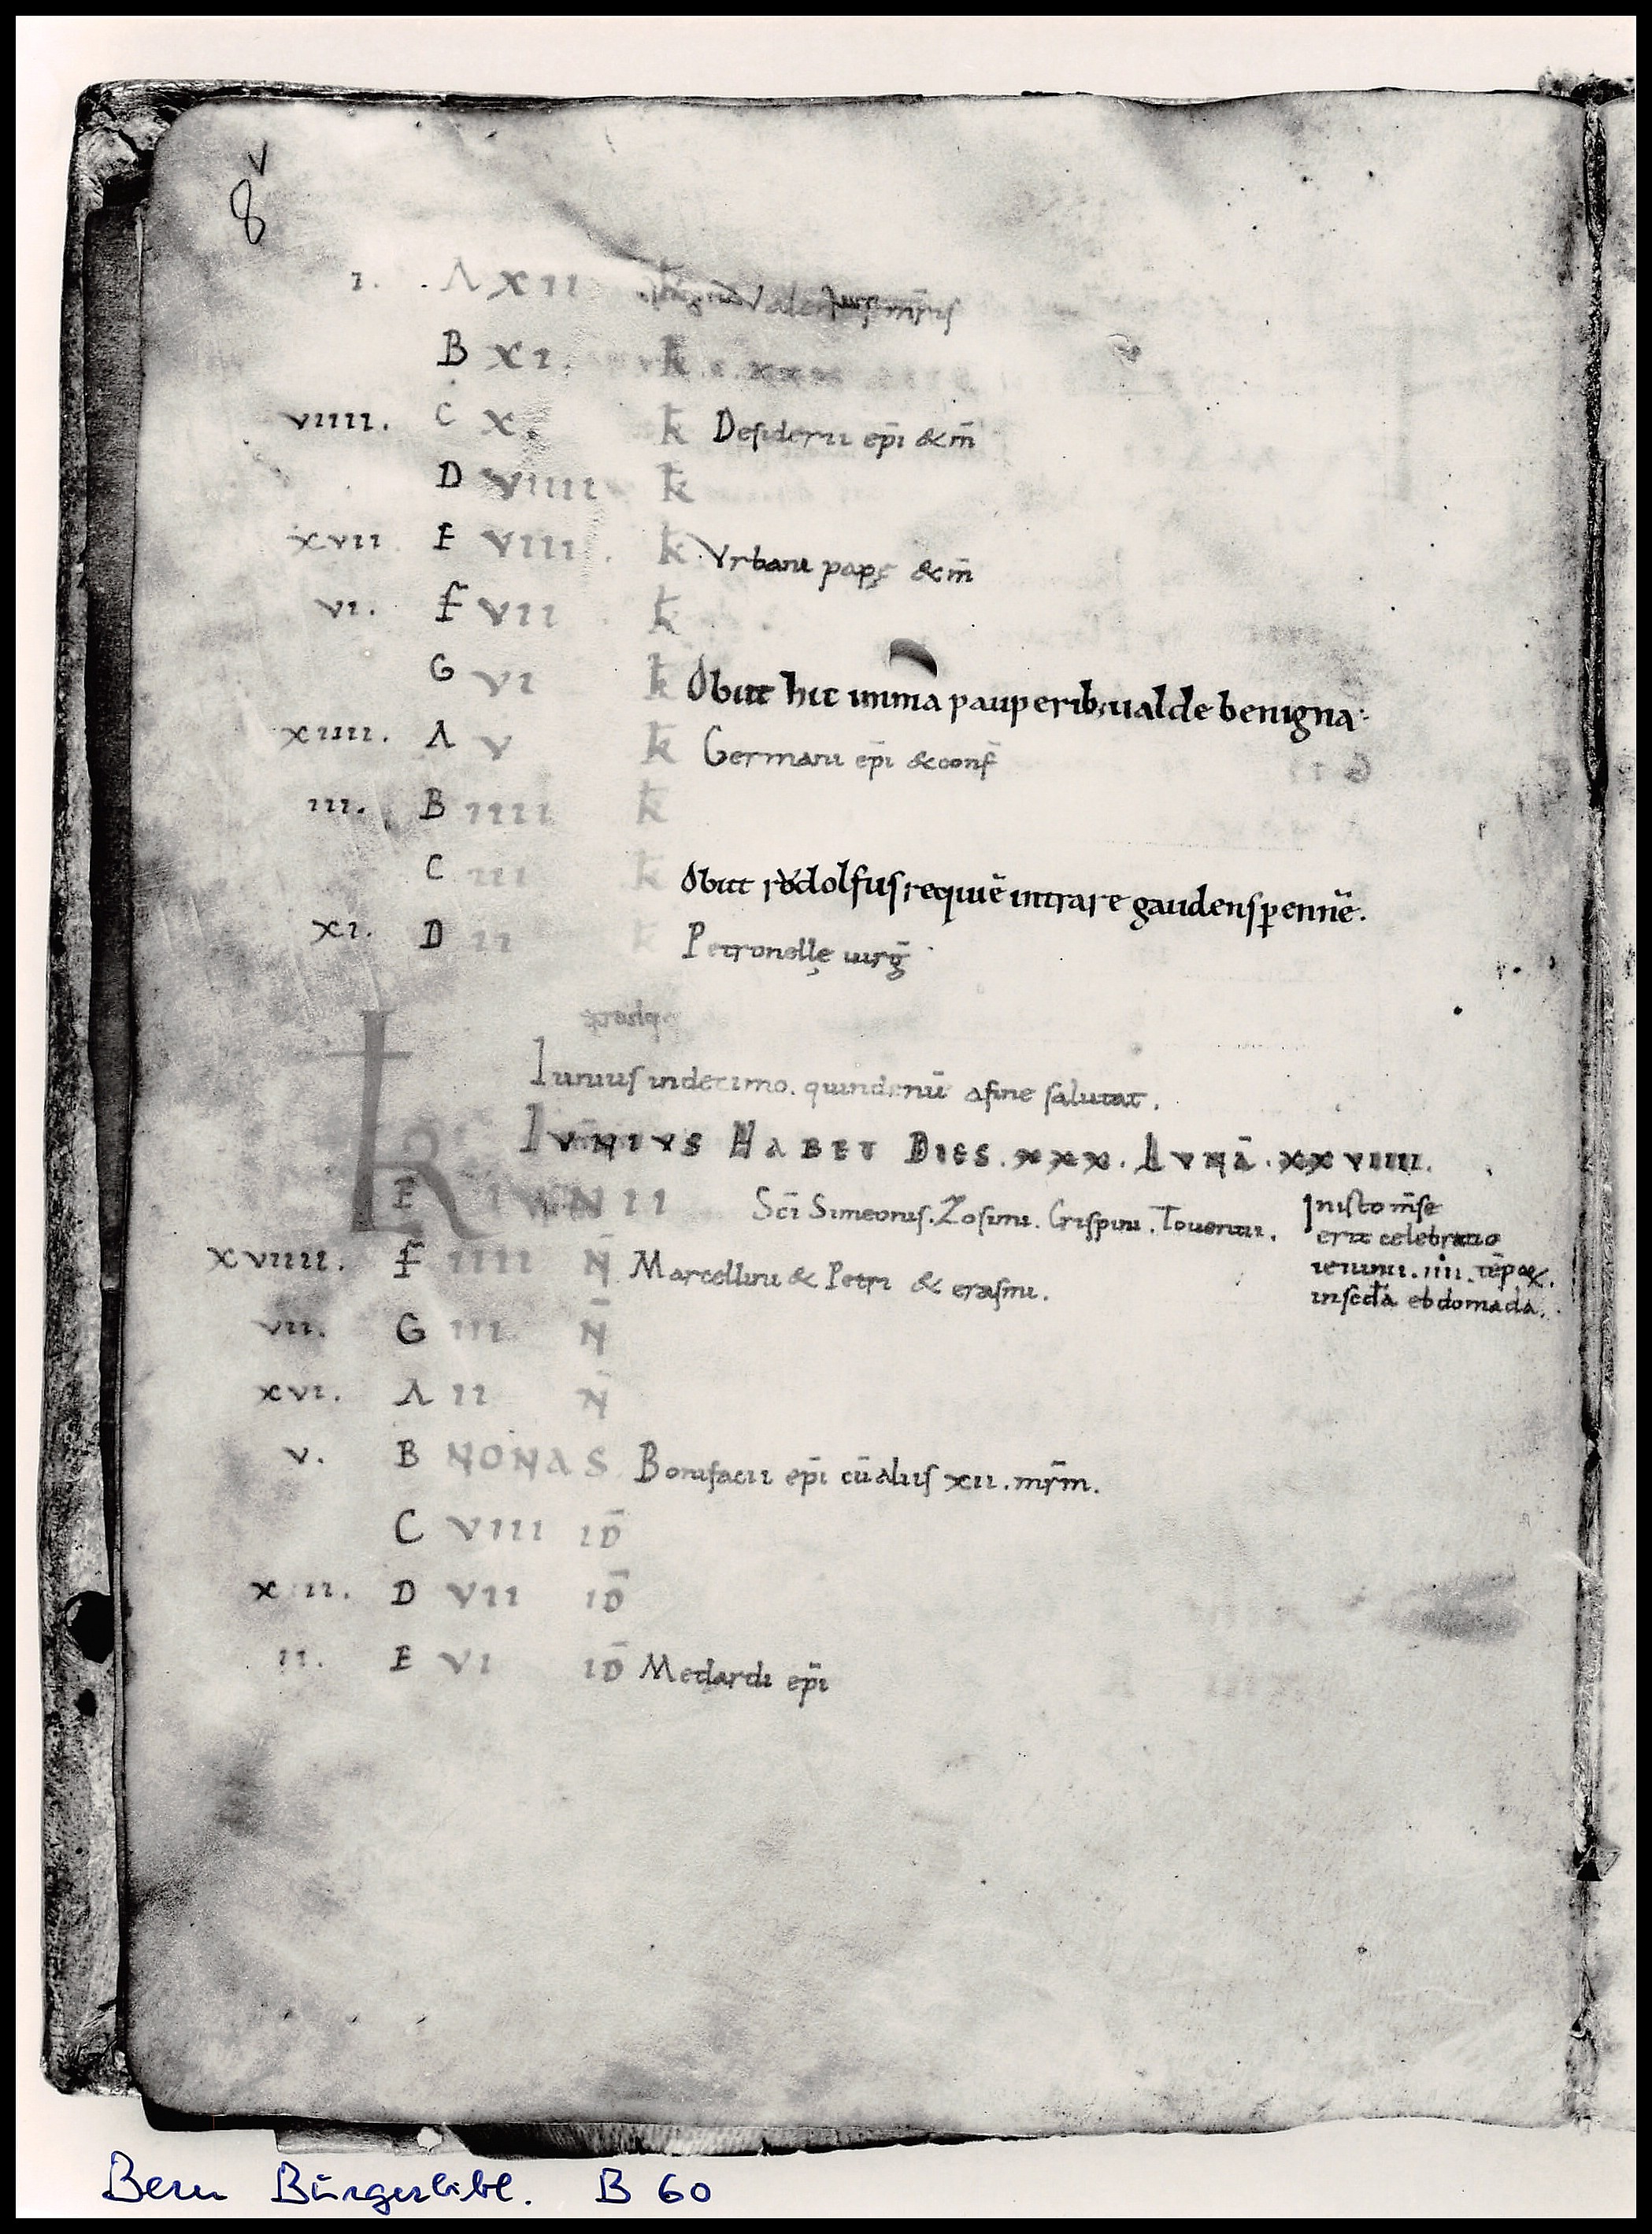 8 v
ı. A XII k̄ Valen mr̄is
B XI. k̄
VIIII. C X. k̄ Desiderii ep̄i & m̄
D VIIII k̄
XVII E VIII. k̄ Vrbani papę & m̄
VI. F VII k̄
G VI k̄ Obiit hic imma pauperib; ualde benigna
XIIII. A V k̄ Germani ep̄i & conf̄
III. B IIII k̄
C III k̄ Obiit rodolfus requiē intrare gaudens ꝑennē.
XI. D II k̄ Petronellę uirḡ
Iunius in decimo. quindenū a fine salutat.
IUNIVS HABET DIES. XXX. LVNĀ. XXVIIII.
K E IVNII Sc̄i Simeonis. Zosimi. Crispini. Iouentii. In isto m̄se
erit celebratio
ieiunii. IIII. tēpoꝝ.
in sc̄da ebdomada.
XVIIII. F IIII N̄ Marcellini & Petri & erasmi.
VII. G III N̄
XVI. A II N̄
V. B NONAS Bonifacii ep̄i cū aliis XII. mr̄m.
C VIII ID̄
XIII. D VII ID̄
II. E VI ID̄ Medardi ep̄i
Bern Bürgerbibl. B 60